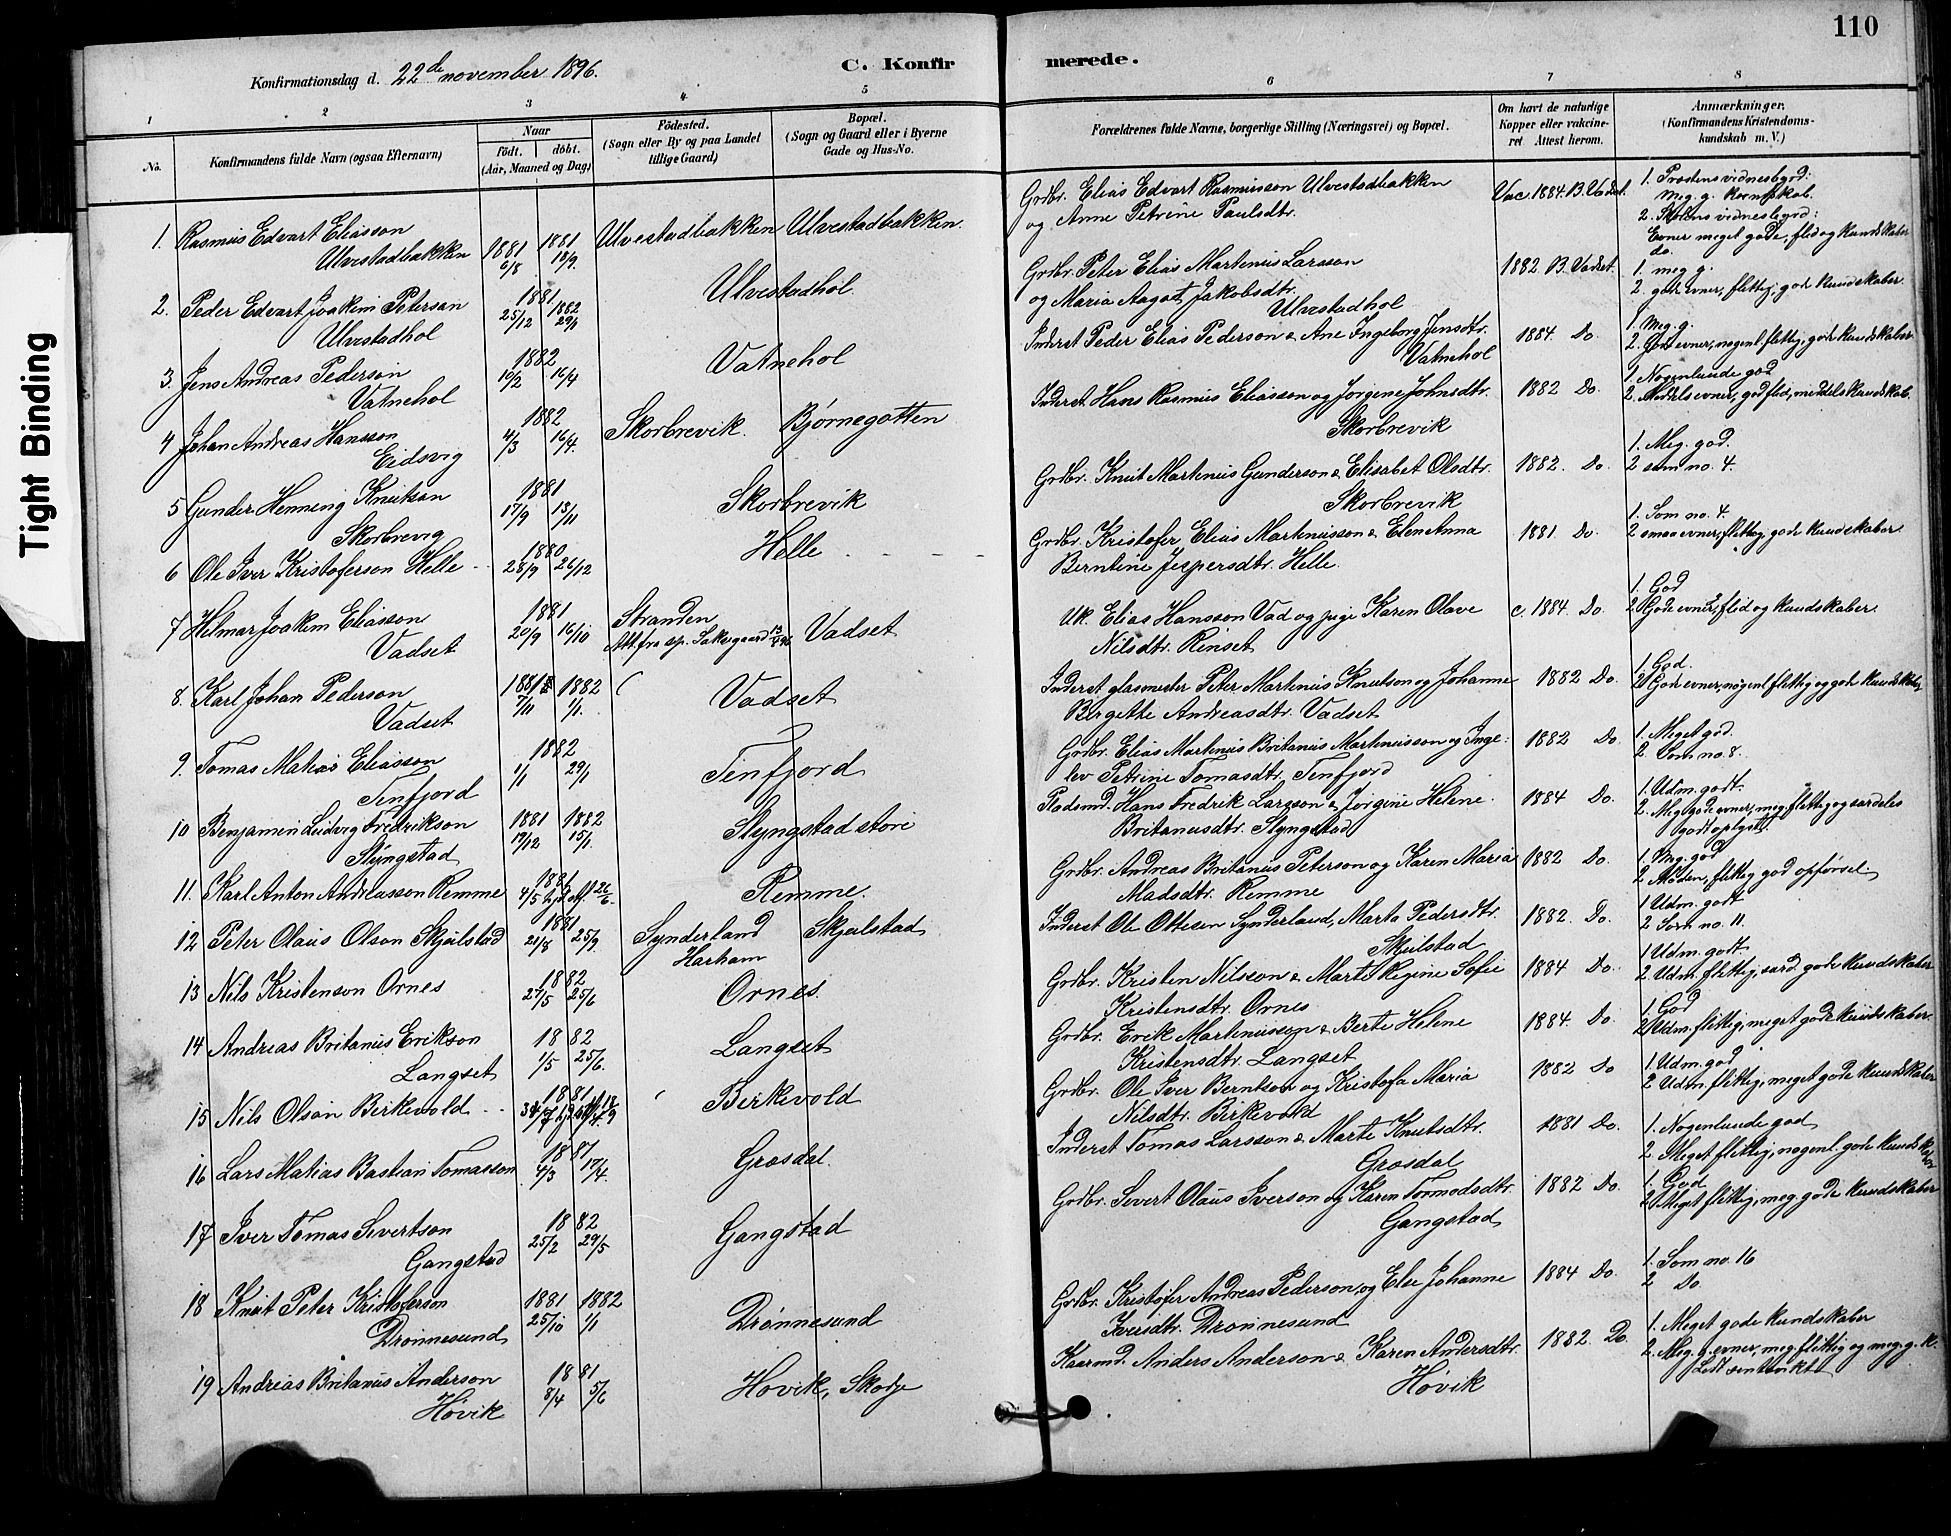 110
Konfirmationsdag d. 22de november 1896.
C. Konfirmerede.
1 2 3 4 5 6 7 8
No. Konfirmandens fulde Navn (ogsaa Efternavn)
Naar
födt. döbt.
(Aar, Maaned og Dag)
Födested.
(Sogn eller By og paa Landet
tillige Gaard)
Bopæl.
(Sogn og Gaard eller i Byerne
Gade og Hus-No.
Forældrenes fulde Navne, borgerlige Stilling (Næringsvei) og Bopæl.
Om havt de naturlige
Kopper eller vakcine-
ret Attest herom.
Anmærkninger.
(Konfirmandens Kristendoms-
kundskab m. V.)
Tight Binding
1. Rasmus Edvart Eliasson
Ulvestadbakken
1881 6/8 1881 18/9
Ulvestadbakken Ulvestadbakken.
Grdbr. Elias Edvart Rasmusson Ulvestadbakken
og Anne Petrine Paulsdtr.
Vac. 1884. B. Vadset.
1. Præstens vidnesbyrd:
Meg. g. kornskab.
2. Skolens vidnesbyrd:
Evner meget gode, flid og kundskaber
do.
2. Peder Edvart Joakim Peterson
Ulvestadhol
1881 25/12 1882 29/1
Ulvestadhol.
Grdbr. Peter Elias Martinius Larsson
og Maria Aagot Jakobsdtr.
Ulvestadhol
1882 B. Vadset.
1. meg g.
2. gode evner, flittig, gode kundskaber.
3. Jens Andreas Pederson
Vatnehol
1882 10/2 16/4
Vatnehol
Inderst Peder Elias Pederson & Ane Ingeborg Jensdtr.
Vatnehol
1884. Do.
1. Meg. g.
2. Gode evner, nogenl. flittig, gode kundskaber
4 Johan Andreas Hansson
Eidsvig
1882 4/3 16/4.
Skorbrevik. Bjørnegotten
Inderst. Hans Rasmus Eliasson og Jorgine Johnsdtr.
Skorbrevik
1882 Do
1. Nogenlunde god
2. Middels evner, god flid, middels kundskab.
5 Gunder Henning Knutson
Skorbrevig
1881 17/9 13/11
Skorbrevik
Grdbr. Knut Martinus Gunderson & Elisabet Olsdtr.
Skorbrevik
1882. Do.
1. Meg. god.
2 som no. 4.
6 Ole Iver Kristoferson Helle
1880 28/9 26/12
Helle
Grdbr. Kristofer Elias Martinusson & Elen Anna
Berntine Jespersdtr. Helle.
1881. Do.
1. Som no. 4.
2 smaa evner, flittig, gode kundskaber
7 Helmar Joakim Eliasson
Vadset
1881 20/9 16/10
Stranden
Att. fra sp. Saksgaard
Vadset
Uk. Elias Hansson Vad og pige Karen Olave
Nilsdtr. Rinset
c. 1884. Do.
1. God
2 Gode evner, flid og kundskaber
8. Karl Johan Pederson
Vadset
1881 7/11 1882 1/1.
Vadset
Inderst glasmester Peter Martinus Knutson og Johanne
Birgethe Andreasdtr. Vadset
1882 Do.
1. God.
2 Gode evner, nogenl. flittig og gode kundskaber
9. Tomas Matias Eliasson
Tenfjord
1882 1/1 29/1
Tenfjord
Grdbr. Elias Martinus Britanus Martinusson og Inge-
lev Petrine Tomasdtr. Tenfjord
1882 Do.
1. Meget god.
2. Som no. 8.
10 Benjamin Ludvig Fredrikson
Slyngstad
1881 17/12 1882 15/1.
Slyngstad store
Pladsmd. Hans Fredrik Larsson & Jørgine Helene
Britanusdtr. Slyngstad
1884 Do.
1. Udm. godt.
2. Meg. gode evner, meg. flittig og særdeles
godt oplyst.
11. Karl Anton Andreasson Remme
1881 4/5 26/6.
Remme.
Grdbr. Andreas Britanus Peterson og Karen Maria
Madsdtr. Remme
1882 Do.
1. Mg. god
2. Moden, flittig, god opførsel
12 Peter Olaus Olson Skjelstad
1881 21/8 25/9
Synderland
Harham
Skjelstad
Inderst Ole Ottesen Synderland, Marta Pedersdtr.
Skjelstad
1882. Do.
1 Udm. godt
2 Som no. 11.
13 Nils Kristenson Ornes
1882 21/5 25/6
Ornes.
Grdbr. Kristen Nilsson & Marte Regine Sofie
Kristensdtr. Ornes
1884 Do.
1 Udm. godt.
2. Udm. flittig, særd. gode kundskaber
14 Andreas Britanus Erikson
Langset
1882 1/5 25/6.
Langset
Grdbr. Erik Martinusson & Berte Helene
Kristensdtr. Langset
1884. Do.
1. God
2 Udm. flittig, meget gode kundskaber.
15 Nils Olson Birkevold
1881 18/9
Birkevold
Grdbr. Ole Iver Berntson og Kristofa Maria
Nilsdtr. Birkevold
1882 Do
1. Udm. god
2 Udm. flittig, meget gode kundskaber
16 Lars Matias Bastian Tomasson
1881 4/3 17/4.
Grosdal.
Inderst Tomas Larsson & Marte Knutsdtr.
Grosdal
1881 Do.
1. Nogenlunde god
2. Meget flittig, nogenl. gode kundskaber
17 Iver Tomas Sivertson
Gangstad
1882 25/2 29/5
Gangstad
Grdbr. Sivert Olaus Iverson og Karen Tormodsdtr.
Gangstad
1882 Do.
1. God
2 Meget flittig, meg. gode kundskaber
18 Knut Peter Kristoferson
Drønnesund
1881 25/10 1882 1/1
Drønnesund
Grdbr. Kristofer Andreas Pederson og Else Johanne
Iversdtr. Drønnesund
1884 Do.
1. Som no. 16
2 Do
19 Andreas Britanus Anderson
Høvik
1881 8/4 5/6
Høvik, Skodje
Kaarmd. Anders Anderson & Karen Andersdtr.
Høvik
1882. Do.
1. Meget gode kundskaber
2. Meg. g. evner, meg. flittig og meg. g. k.